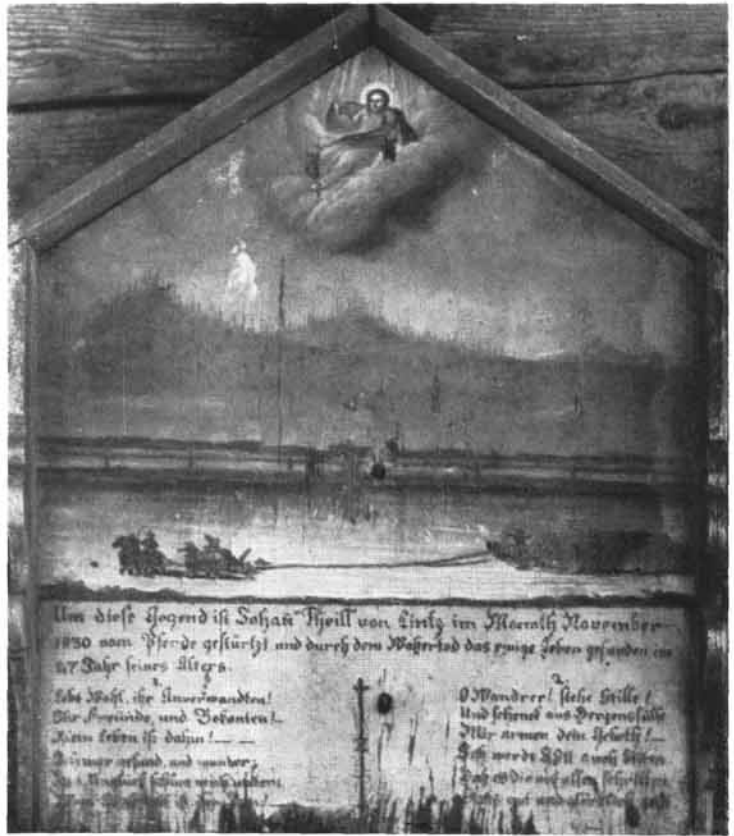 Um diese Gegend ist Johan Theill von Lintz im Monath November
1830 vom Pferde gestürtzt und durch dem Waßertod das ewige Leben gefunden im
47 Jahr seines Alters.
1.
Lebt Wohl, ihr Anverwandten!
Ihr Freunde, und Bekanten!
Mein Leben ist dahin! — —
gesund, und munter,
Unglück
2.
O Wandrer! stehe stille!
Und schenck aus Hertzensfülle
Mir armen dein Gebeth! —
Ich werde Gott auch bitten
Daß es dir auf allen Schritten
gut und glücklich geht